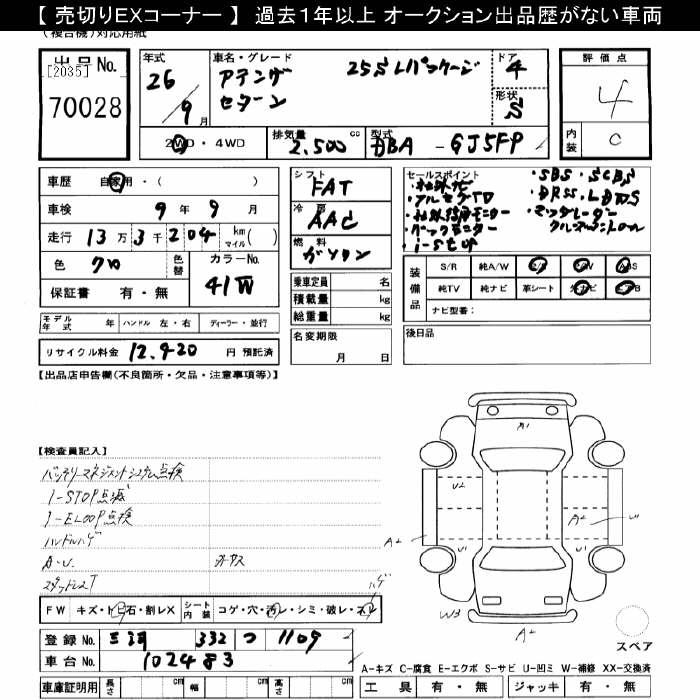 【 売切りEXコーナー 】 過去1年以上 オークション出品歴がない車両
(複合機)対応用紙
出品No.
[2035]
70028
年式
26
9月
車名・グレード
アテンザ 25S Lパッケージ
セダン
ドア
4
形状
S
評価点
4
内装
C
2WD・4WD
排気量
2.500 cc
型式
DBA - GJ5FP
車歴 自家用・( )
車検 9年9月
走行 13万3千204 km マイル( )
色 クロ
色替
カラーNo.
41W
保証書 有・無
シフト
FAT
冷房
AAC
燃料
ガソリン
乗車定員 名
積載量 kg
総重量 kg
名変期限
月 日
セールスポイント
・社外ナビ
・フルセグTD
・バックモニター
・i-STOP
・SBS・SCBS
・DRSS・LDWS
・マツダレーダー
クルーズコントロール
装備品
S/R 純A/W
純TV 純ナビ 革シート
ナビ型番:
後日品
モデル年式 年 ハンドル 左・右 ディーラー・並行
リサイクル料金 12.920 円 預託済
【出品店申告欄(不良箇所・欠品・注意事項等)】
【検査員記入】
バッテリーマネジメントシステム点検
i-STOP点滅
i-ELOOP点検
ハンドルハゲ
A・U.
スタッドレスT
ハゲ
FW キズ・ト石・割レX シート内装 コゲ・穴・汚レ・シミ・破レ・スレ
登録No. 三河 332 つ 1109
車台No. 102483
車庫証明用 長さ cm 幅 cm 高さ cm
A1
U2
A2
U1
U1
U1
A2
W3
A2
スペア
A-キズ C-腐食 E-エクボ S-サビ U-凹ミ W-補修 XX-交換済
工具 有・無 ジャッキ 有・無